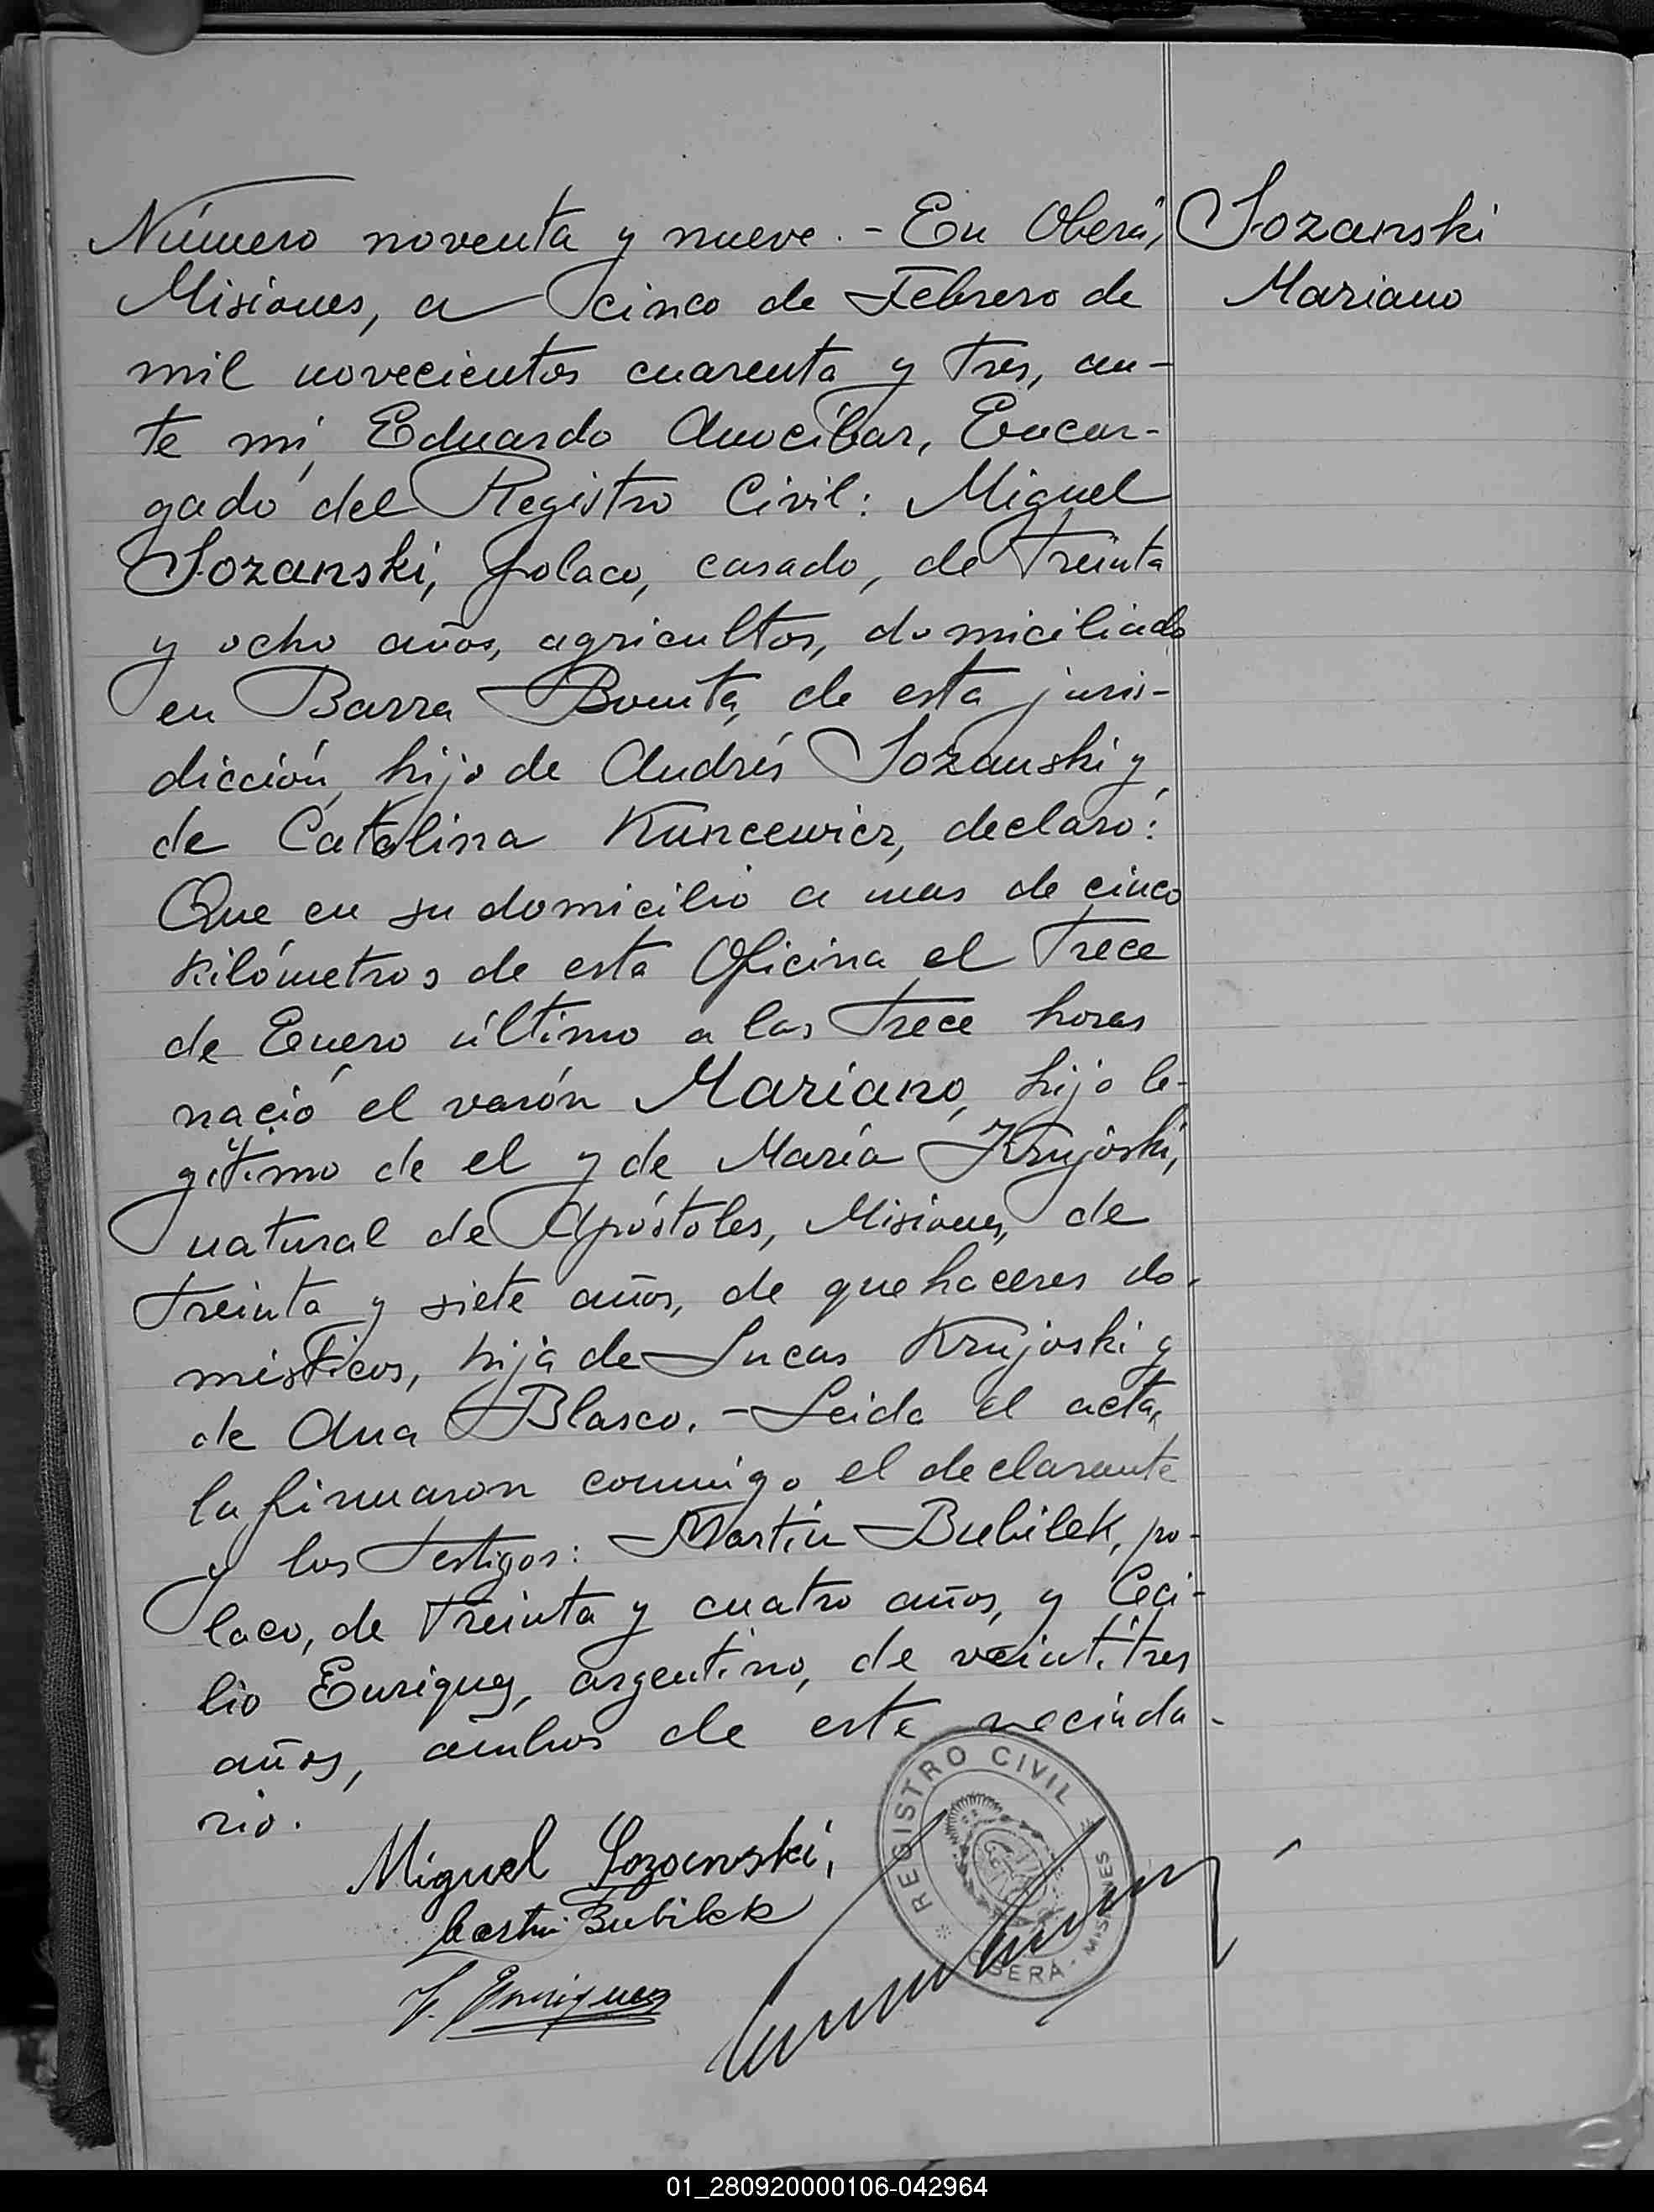 Número noventa y nueve.- En Oberá,
Sozanski
Misiones, a cinco de Febrero de
Mariano
mil novecientos cuarenta y tres, an-
te mí, Eduardo Anocíbar, Encar-
gado del Registro Civil: Miguel
Sozanski, polaco, casado, de treinta
y ocho años, agricultor, domiciliado
en Barra Bonita, de esta juris-
dicción, hijo de Andrés Sozanski y
de Catalina Kuncewicz, declaró:
Que en su domicilio a mas de cinco
kilómetros de esta Oficina el trece
de Enero último a las trece horas
nació el varón Mariano, hijo le-
gítimo de el y de María Krujoski,
natural de Apóstoles, Misiones, de
treinta y siete años, de quehaceres do-
mésticos, hija de Lucas Krujoski y
de Ana Blasco.- Leida el acta,
la firmaron conmigo el declarante
y los testigos: Martín Bubilek, po-
laco, de treinta y cuatro años, y Ceci-
lio Enriquez, argentino, de veintitres
años, ambos de este vecinda-
rio.
REGISTRO CIVIL
OBERÁ - MISIONES
Miguel Sozanski,
Martin Bubilek
Enriquez
01_280920000106-042964